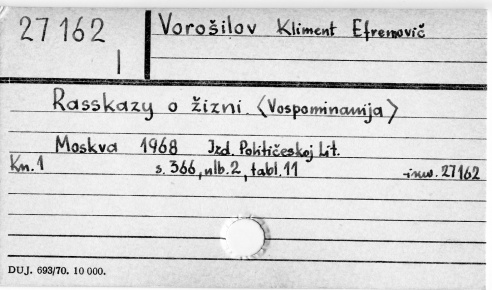 27162
I
Vorošilov Kliment Efremovič
Rasskazy o žizni. <Vospominanija>
Moskva 1968 Izd. Političeskoj Lit.
Kn. 1 s. 366, nlb. 2, tabl. 11 -inw. 27162
DUJ. 693/70. 10 000.